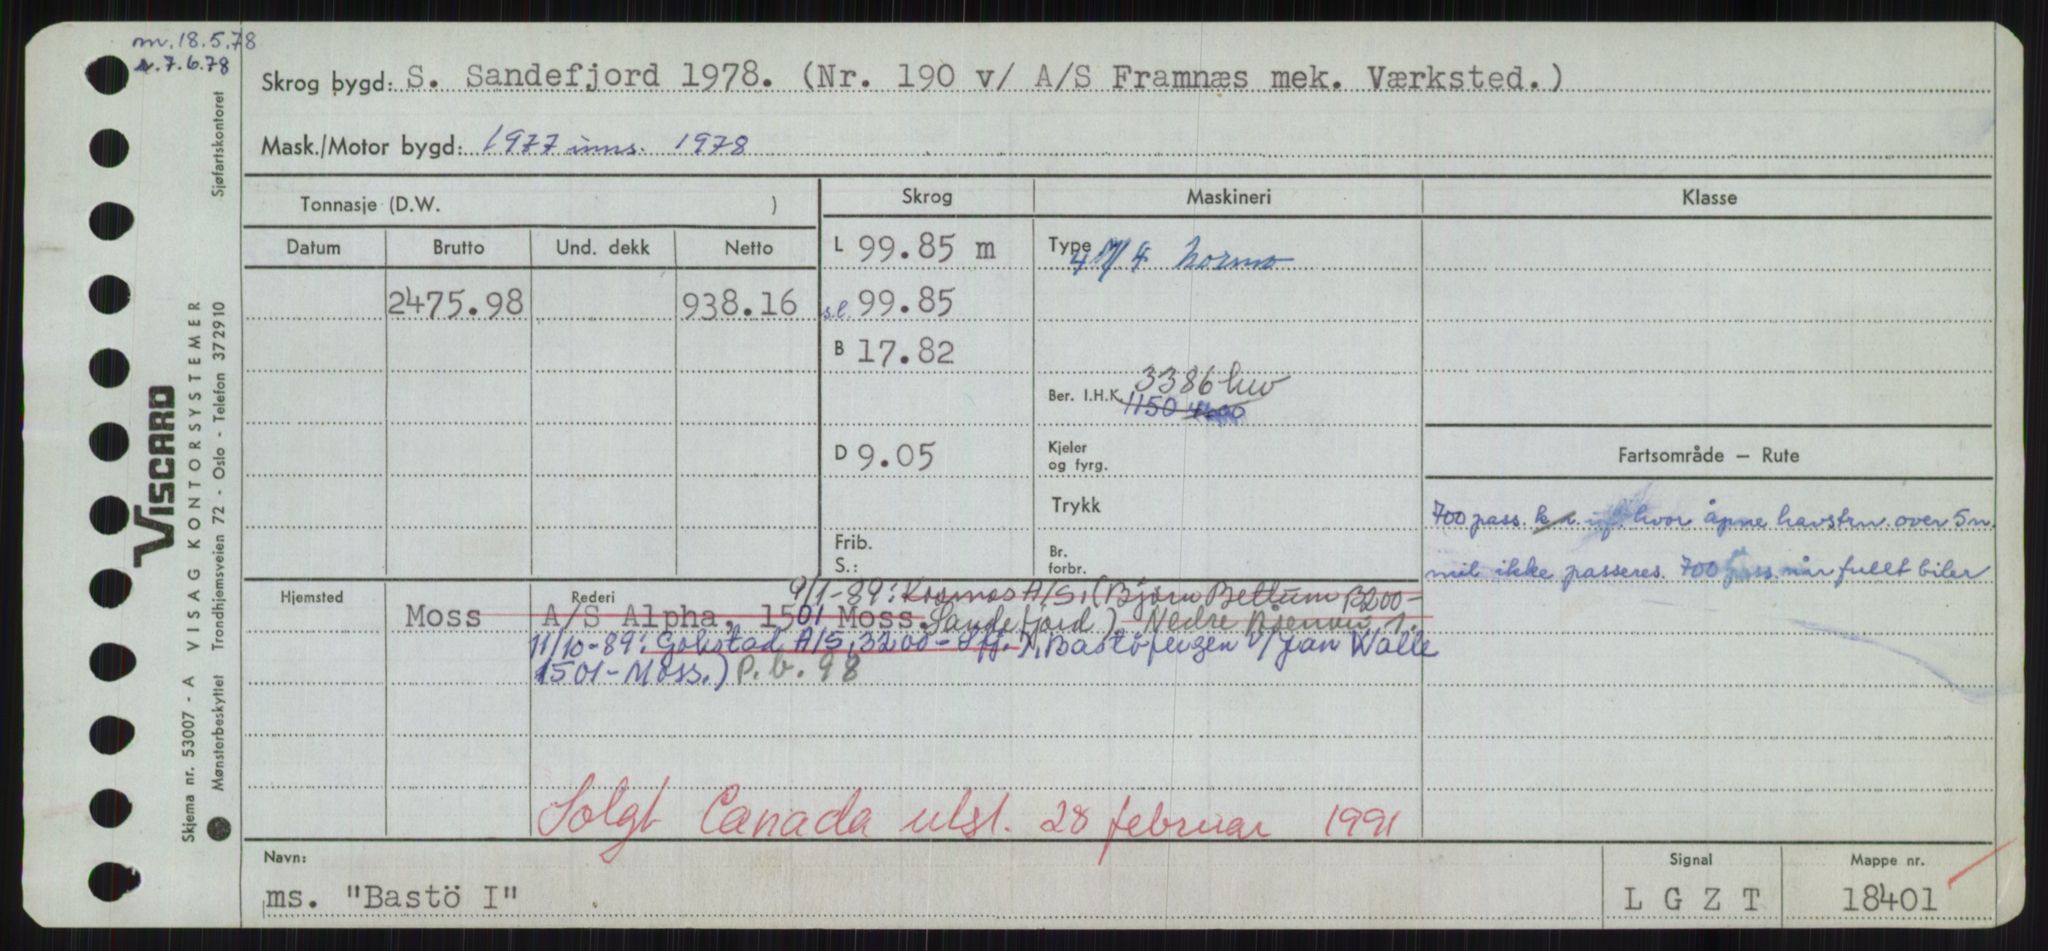 m. 18.5.78
r. 7.6.78
Skrog bygd: S. Sandefjord 1978. (Nr. 190 v/ A/S Framnæs mek. Værksted.)
Mask./Motor bygd: 1977 inns. 1978
Tonnasje (D.W. )
Skrog
Maskineri
Klasse
Datum Brutto Und. dekk Netto
L 99.85 m
Type 4 M/4 Normo
2475.98 938.16
s.l. 99.85
B 17.82
3386 hw
Ber. I.H.K. 1150
D 9.05
Kjeler og fyrg.
Fartsområde — Rute
Trykk
700 pass. hvor åpne havstrn. over 5 n.
Frib.
S.:
Br. forbr.
mil ikke passeres. 700 pass. når fullt biler
Hjemsted
Rederi
9/1-89: Kosmos A/S, (Bjørn Bettum 3200-
Moss A/S Alpha, 1501 Moss. Sandefjord)
11/10-89: Gokstad A/S, 3200- Sfj. Bastöfergen v/Jan Walle
1501-Moss.) P.b. 98
Solgt Canada utsl. 28 februar 1991
Navn:
ms. "Bastö I"
Signal
L G Z T
Mappe nr.
18401
Sjøfartskontoret
VISCARD
VISAG KONTORSYSTEMER
Trondhjemsveien 72 - Oslo - Telefon 372910
Skjema nr. 53007 - A
Mønsterbeskyttet